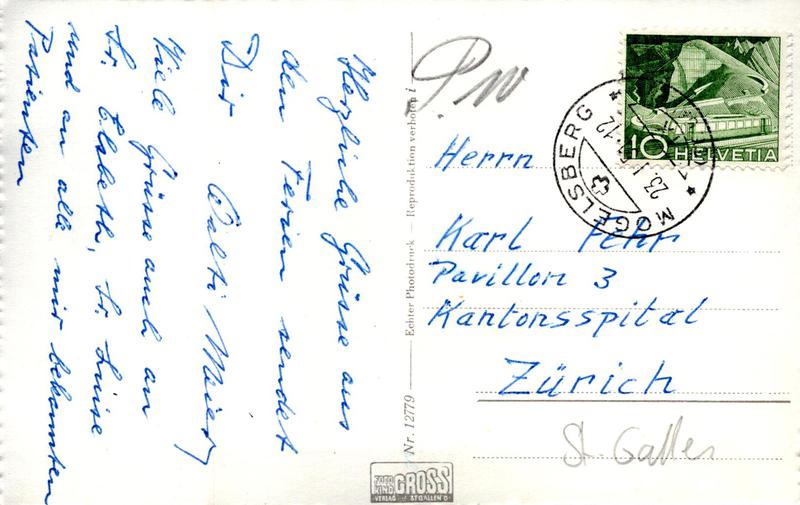 Herzliche Grüsse aus
den Ferien sendet
Dir Walti Maier
Viele Grüsse auch an
Sr. Elsbeth, Sr. Luise
und an alle mir bekannten
Patienten
Nr. 12779 — Echter Photodruck — Reproduktion verboten
GROSS
VERLAG ST. GALLEN
HELVETIA
10
MOGELSBERG
23.
Herrn
Karl Fehr
Pavillon 3
Kantonsspital
Zürich
St. Gallen